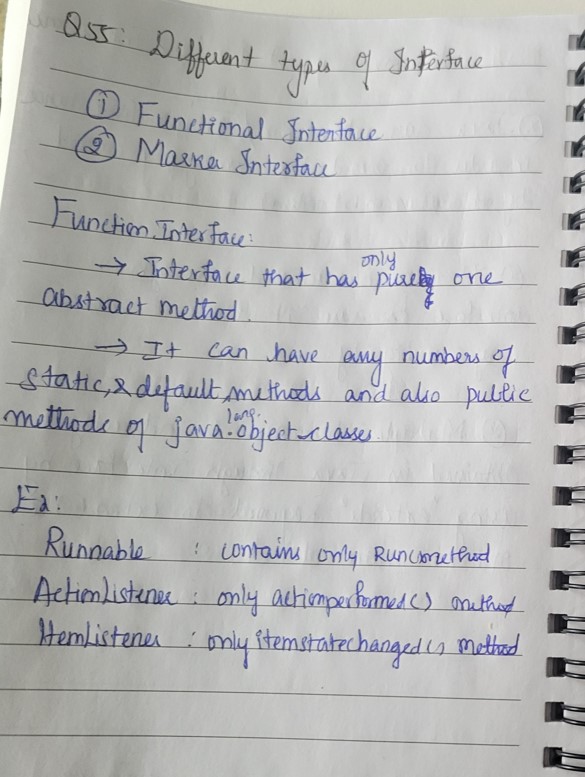 Q55: Different types of Interface
① Functional Interface
② Marker Interface
Function Interface:
→ Interface that has only purely one
abstract method.
→ It can have any numbers of
static, & default methods and also public
methods of java.lang.object classes
Ex:
Runnable : contains only Run() method
ActionListener : only actionperformed() method
ItemListener : only itemstatechanged() method